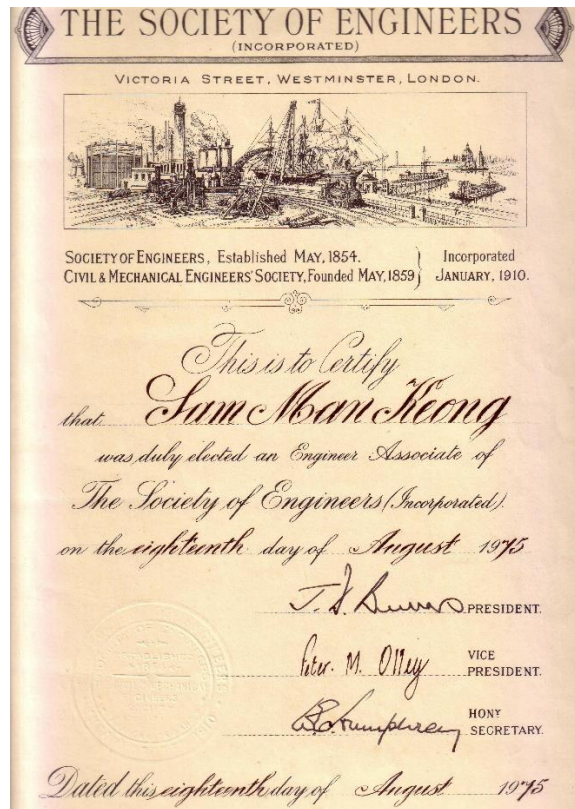 THE SOCIETY OF ENGINEERS
(INCORPORATED)
VICTORIA STREET, WESTMINSTER, LONDON.
SOCIETY OF ENGINEERS, Established MAY, 1854.
CIVIL & MECHANICAL ENGINEERS' SOCIETY, Founded MAY, 1859 } Incorporated JANUARY, 1910.
This is to Certify
that Sam Man Keong
was duly elected an Engineer Associate of
The Society of Engineers (Incorporated).
on the eighteenth day of August 1975
PRESIDENT.
Peter. M. Olley VICE PRESIDENT.
Humphrey HONY SECRETARY.
Dated this eighteenth day of August 1975